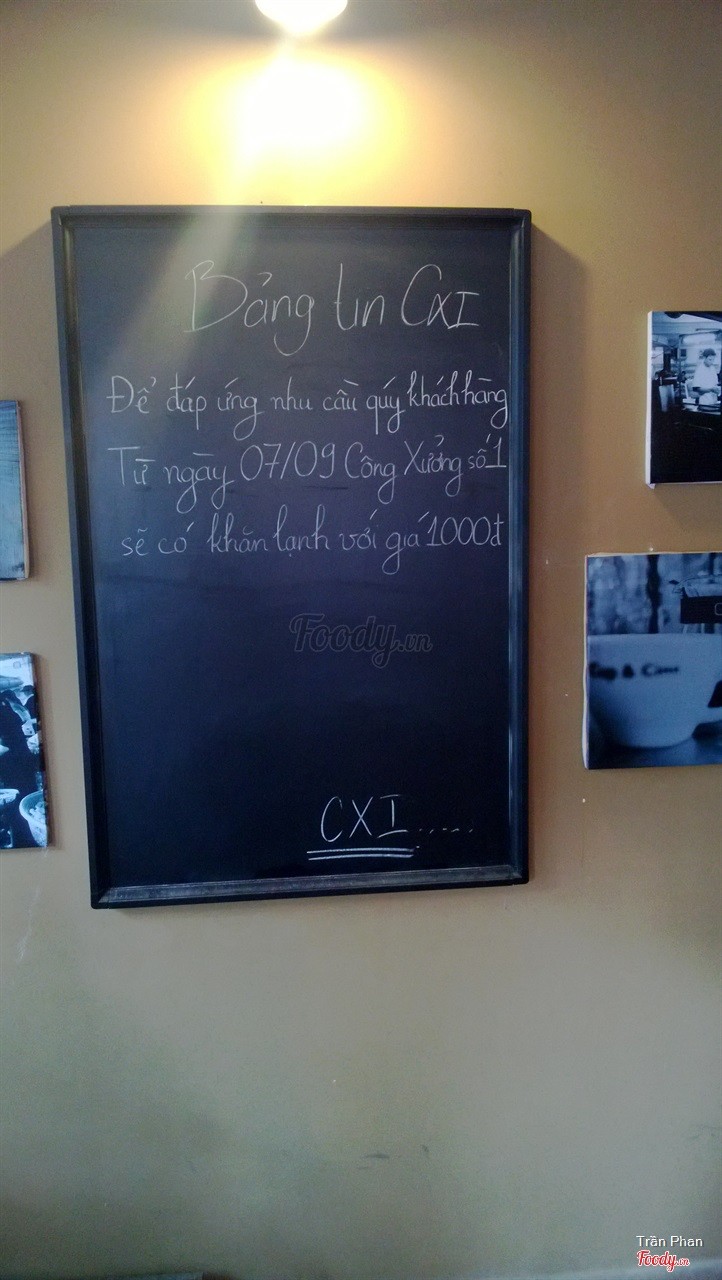 Bảng tin CXI
Để đáp ứng nhu cầu quý khách hàng
Từ ngày 07/09 Công Xưởng số 1
sẽ có khăn lạnh với giá 1000đ
Foody.vn
CXI......
Trần Phan
Foody.vn